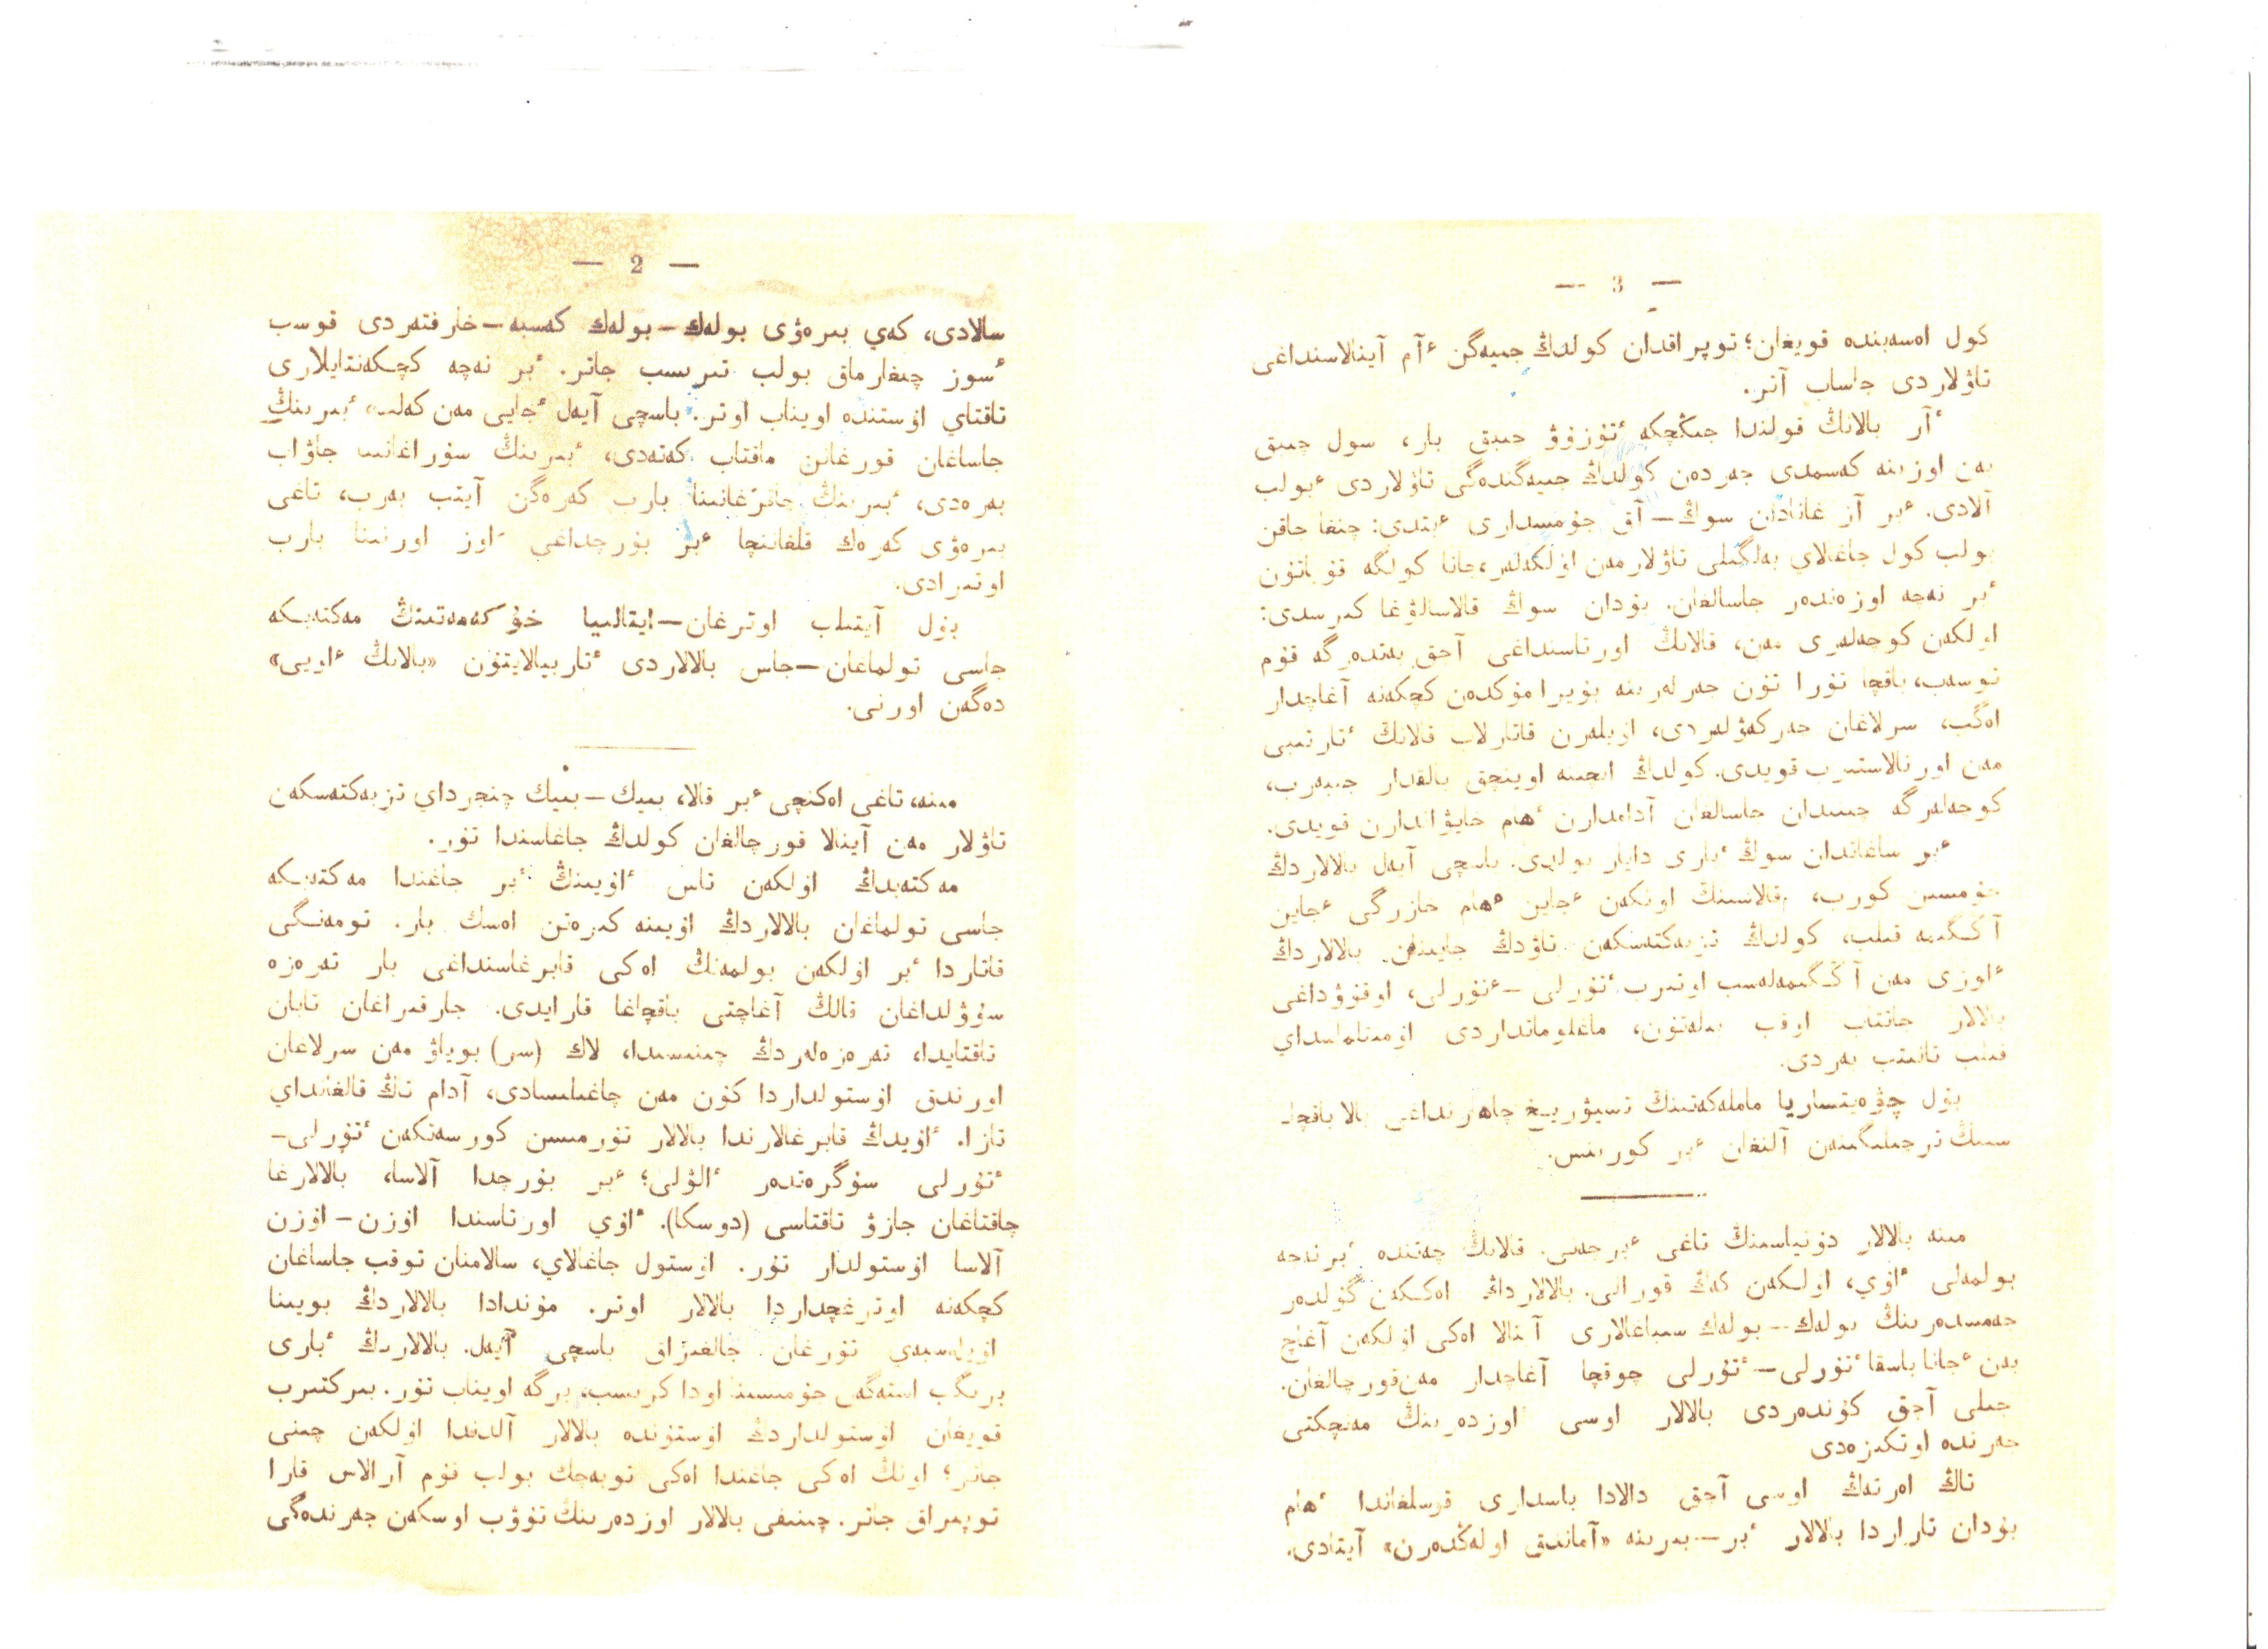 — 2 —
سالادى، كەي بىرەۋى بولەك—بولەك كەسبە—خارفتەردى قوسب
ٴسوز چىغارماق بولب تىرىسب جاتر. ٴبر نەچە كچكەنتايلارى
تاقتاي اۋستندە اويناب اوتر. باسچى آيەل ٴجايى مەن كەلب، ٴبىرىنىڭ
جاساغان قورغانن ماقتاب كەتەدى، ٴبىرىنىڭ سۇراغانىنا جاۋاب
بەرەدى، ٴبىرىنىڭ جاتىرغانىنا بارب كەرەگن آيتب بەرب، تاغى
بىرەۋى كەرەك قىلغانىنچا ٴبر بۇرچداغى ٴاوز اورنىنا بارب
اوتىرادى.
بۇل آيتىلب اوتىرغان—ايتالىيا خۇكەمەتىنىڭ مەكتەبكە
جاسى تولماغان—جاس بالالاردى ٴتاربيالايتۇن «بالانىڭ ٴاويى»
دەگەن اورنى.
مىنە، تاغى اەكنچى ٴبر قالا، بىيك—بىيك چنجرداي تزبەكتەسكەن
تاۋلار مەن آينالا قورچالغان كولدىڭ جاغاسندا تۇر.
مەكتەبدىڭ اۋلكەن تاس ٴاۋيىنىڭ ٴبر جاغندا مەكتەبكە
جاسى تولماغان بالالاردىڭ اۋيىنە كىرەتن اەسك بار. تومەنگى
قاتاردا ٴبر اۋلكەن بولمەنىڭ اەكى قابرغاسنداغى بار تەرەزە
سۇۋلداغان قالىڭ آغاچتى باقچاغا قارايدى. جارقىراغان تابان
تاقتايدا، تەرەزەلەردىڭ چىنىسىندا، لاك (سر) بوياۋ مەن سرلاغان
اورندق اۋستولداردا كۇن مەن چاغىلىسادى، آدام تاڭ قالغانداي
تازا. ٴاۋيدىڭ قابرغالارندا بالالار تۇرمىسن كورسەتكەن ٴتۇرلى—
ٴتۇرلى سۇگرەتدەر ٴالۋلى؛ ٴبر بۇرچدا آلاسا، بالالارغا
چاقتاغان جازۋ تاقتاسى (دوسكا). ٴاۋي اورتاسندا اۋزن—اۋزن
آلاسا اۋستولدار تۇر. اۋستول جاغالاي، سالامنان توقب جاساغان
كچكەنە اوترغچداردا بالالار اوتر. مۇندادا بالالاردىڭ بويىنا
اۋيلەسبەي تۇرغان جالغىزاق باسچى آيەل. بالالاردىڭ ٴبارى
برىگب استەگەن جۇمىسىنا اودا كرىسب، برگە اويناب تۇر. بىركتىرب
قويغان اۋستولداردىڭ اۋستۇندە بالالار آلدىندا اۋلكەن چىنى
جاتر؛ اونىڭ اەكى جاغندا اەكى توبەچك بولب قۇم آرالاس قارا
توپىراق جاتر. چىنىغى بالالار اوزدەرىنىڭ تۇۋب اوسكەن جەرندەگى
— 3 —
كول اەسەبىندە قويغان؛ توپراقدان كولدىڭ جىيەگن ٴآم آينالاسنداغى
تاۋلاردى جاساب آتر.
ٴآر بالانىڭ قولىندا جىڭچكە ٴتۇزۇۋ چىبق بار، سول چىبق
بەن اوزىنە كەسمدى جەردەن كولدىڭ جىيەگندەگى تاۋلاردى ٴبولب
آلادى. ٴبر آز غانادان سوڭ—آق جۇمسدارى ٴبتدى: چنغا جاقن
بولب كول جاغالاي بەلگىلى تاۋلارمەن اۋلكەلەر، جانا كولگە قۇياتۇن
ٴبر نەچە اوزەندەر جاسالغان. بۇدان سوڭ قالاسالۋغا كىرسدى:
اۋلكەن كوچەلەرى مەن، قالانىڭ اورتاسنداغى آچق بەتدەرگە قۇم
توسەب، باقچا تۇراتۇن جەرلەرىنە بۇيرامۇكدەن كچكەنە آغاچدار
اەگب، سرلاغان جەركەۋلەردى، اۋيلەرن قاتارلاب قالانىڭ ٴتارتىبى
مەن اورنالاستىرب قويدى. كولدىڭ اىچىنە اوينچق بالقدار جىبەرب،
كوچەلەرگە چىبىدان جاسالغان آدامدارن ٴهام حايۋاندارن قويدى.
ٴبر ساغاتدان سوڭ ٴبارى دايار بولدى. باسچى آيەل بالالاردىڭ
جۇمىسن كورب، قالاسىنىڭ اوتكەن ٴجاين ٴهام حازرگى ٴجاين
آڭگىمە قىلب، كولدىڭ تزبەكتەسكەن تاۋدىڭ جايىنان بالالاردىڭ
ٴاوزى مەن آڭگىمەلەسب اوتىرب ٴتۇرلى—ٴتۇرلى، اوقۇۋداغى
بالالار جاتتاب اوقب بىلەتۇن، ماغلوماتداردى
قىلب تانىتب بەردى.
بۇل چۋەيتسارىا ماملەكەتىنىڭ تسيۋريخ چاهارنداغى بالا باقچا-
سىنىڭ ترچىلىگىنەن آلىنغان ٴبر كورىنس.
مىنە بالالار دۇنياسىنىڭ تاغى ٴبرجەنى. قالانىڭ چەتندە ٴبرنەچە
بولمەلى ٴاۋي، اۋلكەن كەڭ قورالى. بالالاردىڭ اەككەن گۇلدەر
جەمىسدەرىنىڭ بولەك—بولەك سىباغالارى آينالا اەكى اۋلكەن آغاچ
بەن ٴجانا باسقا ٴتۇرلى—ٴتۇرلى چوقچا آغاچدار مەن قورچالغان.
جىلى آچق كۇندەردى بالالار اوسى ٴاوزدەرىنىڭ مەنچكتى
جەرندە اوتكىزەدى
تاڭ اەرتەڭ اوسى آچق دالادا باسدارى قوسلغاندا ٴهام
بۇدان تاراردا بالالار ٴبر—بىرىنە «آماندىق اولەڭدەرن» آيتادى.